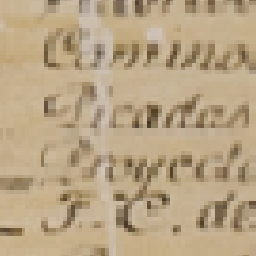 Caminos
Picadas
Proyecto
F. C. de